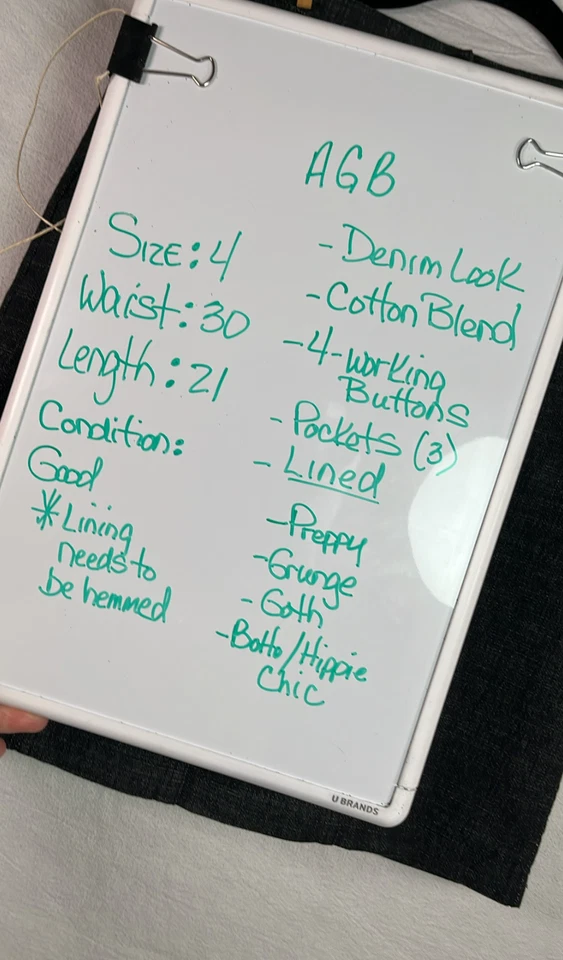 AGB
Size: 4
Waist: 30
Length: 21
Condition:
Good
* Lining
needs to
be hemmed
- Denim Look
- Cotton Blend
- 4-working
Buttons
- Pockets (3)
- Lined
- Preppy
- Grunge
- Goth
- Boho/Hippie
Chic
U BRANDS